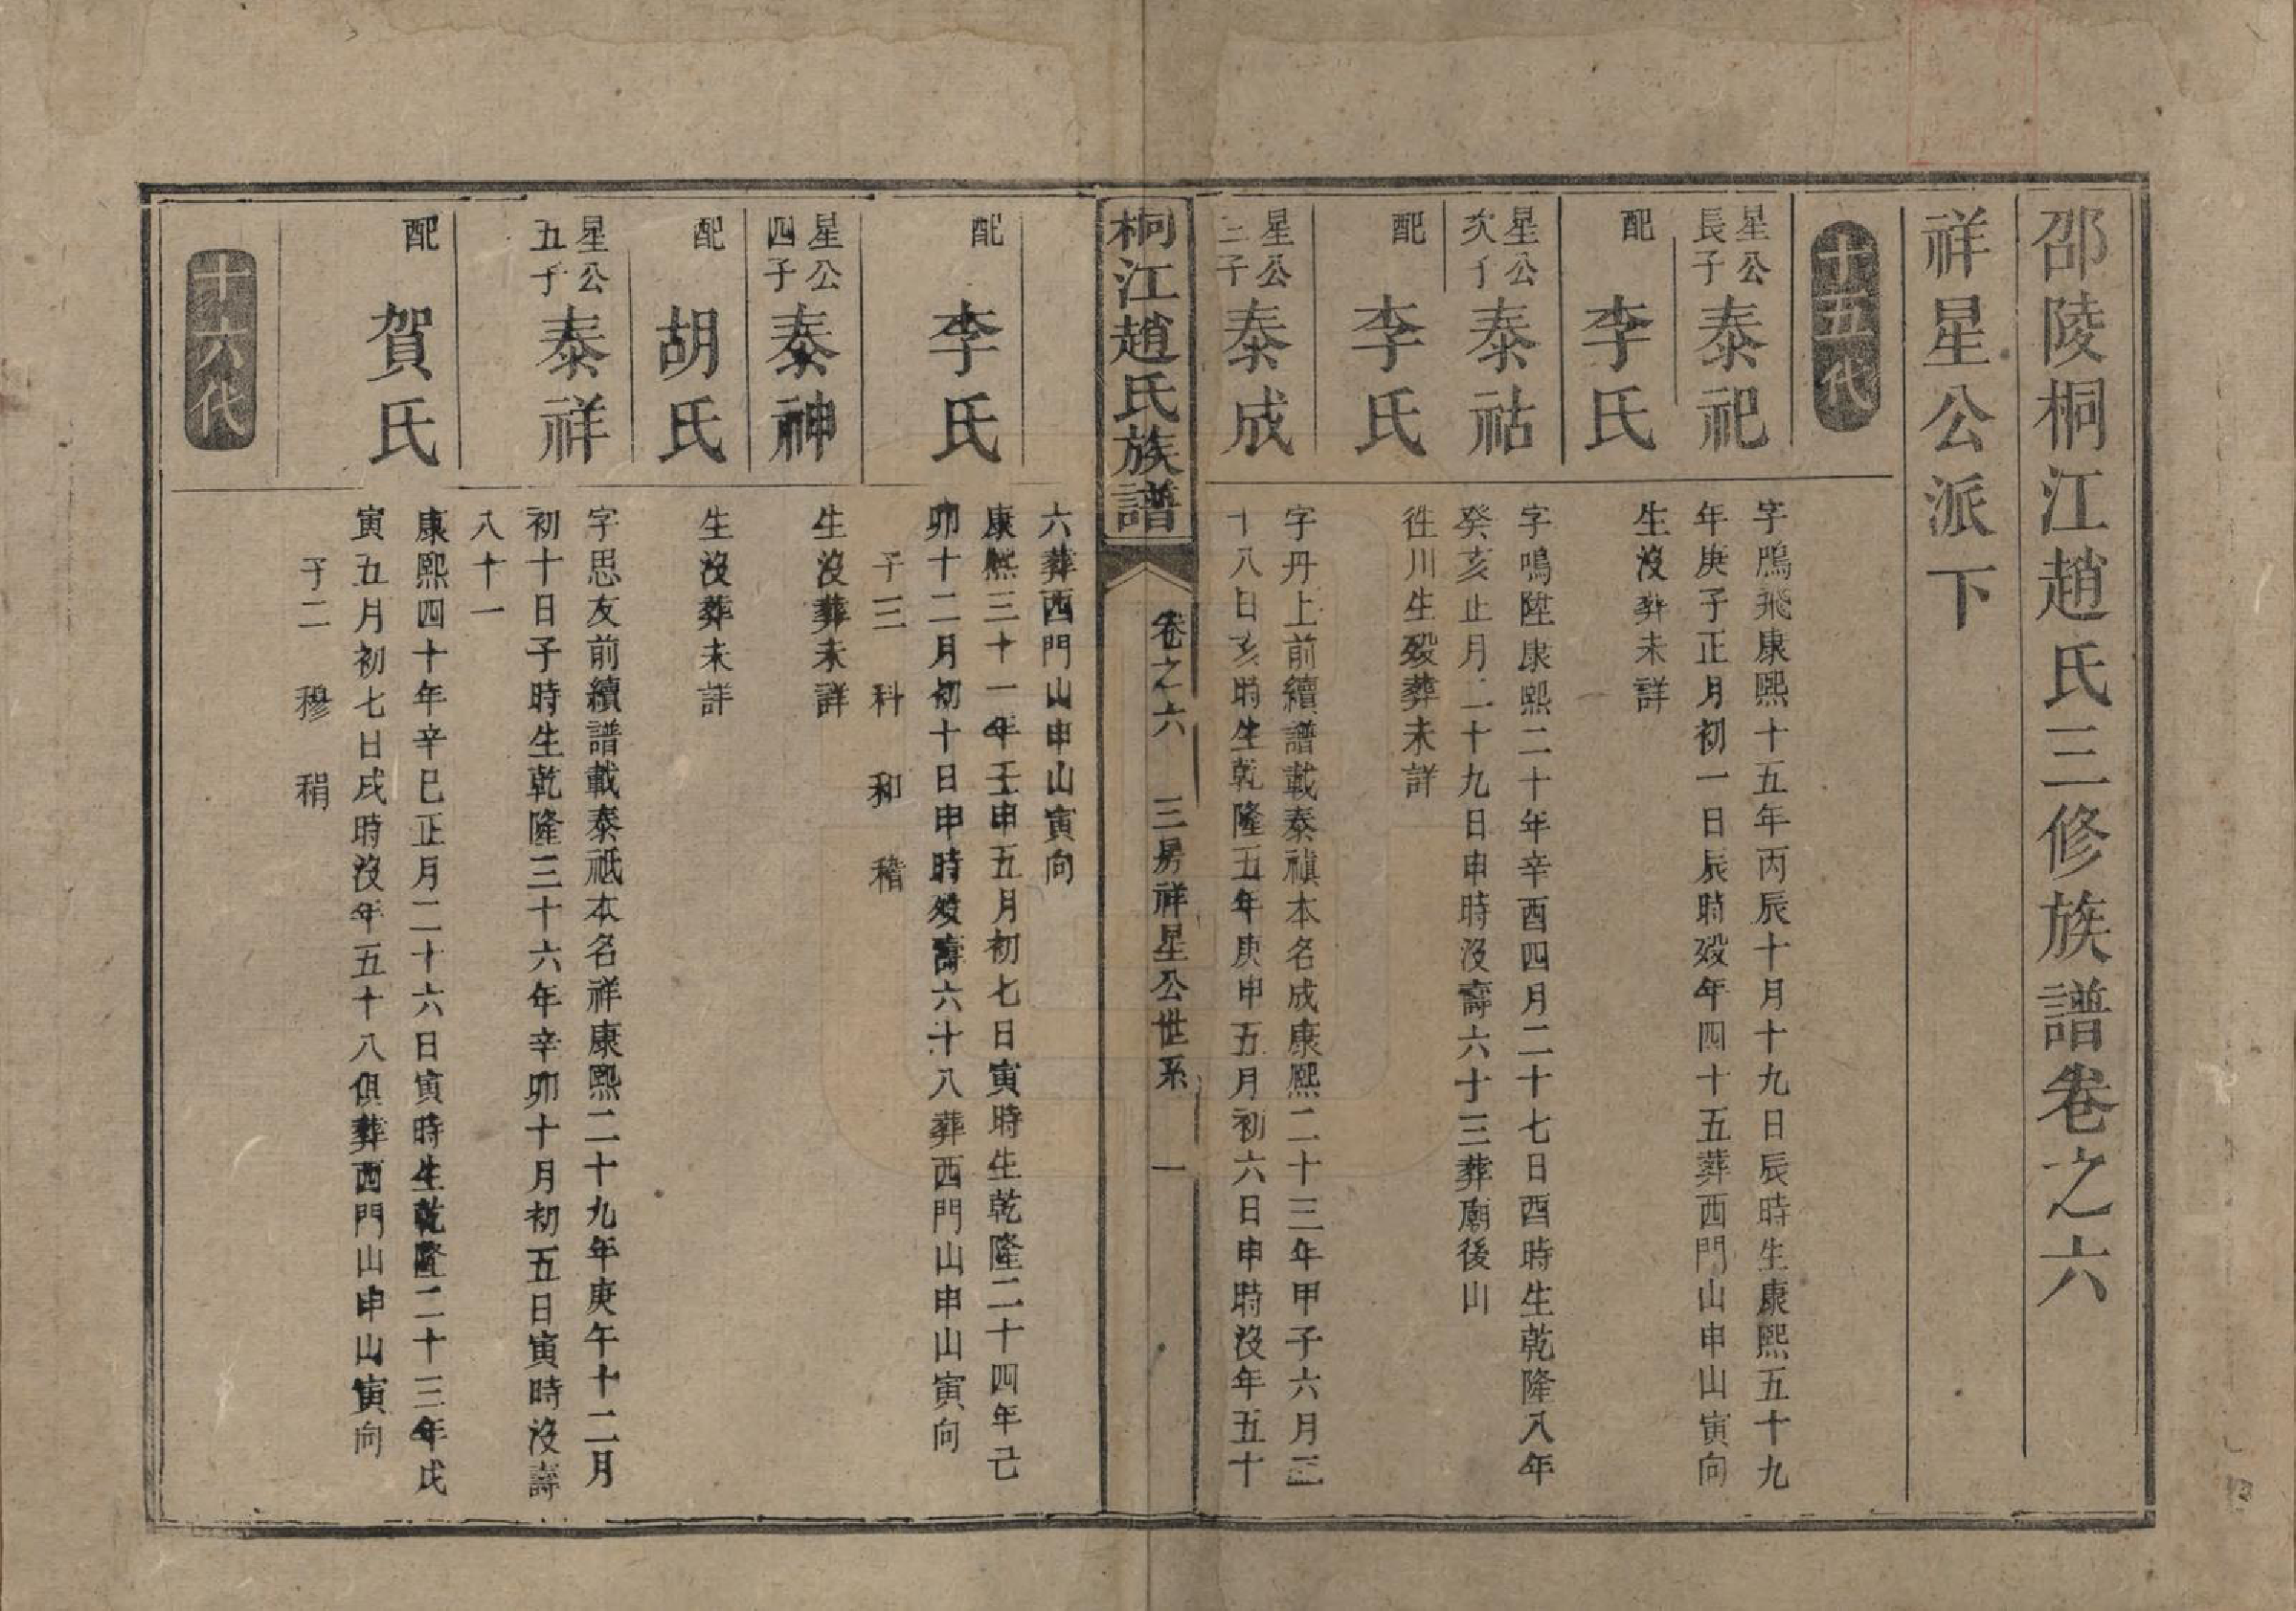 邵陵桐江趙氏三修族譜卷之六
祥星公派下
十五代
星公
長子
泰祀
字鳴飛康熙十五年丙辰十月十九日辰時生康熙五十九
年庚子正月初一日辰時歿年四十五葬西門山申山寅向
配
李氏
生沒葬未詳
星公
次子
泰祜
字鳴陞康熙二十年辛酉四月二十七日酉時生乾隆八年
癸亥正月二十九日申時沒壽六十三葬廟後山
配
李氏
徃川生歿葬未詳
星公
三子
泰成
字丹上前續譜載泰禛本名成康熙二十三年甲子六月三
十八日亥時生乾隆五年庚申五月初六日申時沒年五十
桐江趙氏族譜
卷之六 三房祥星公世系 一
六葬西門山申山寅向
配
李氏
康熙三十一年壬申五月初七日寅時生乾隆二十四年己
卯十二月初十日申時歿壽六十八葬西門山申山寅向
子三 科 和 稭
星公
四子
泰神
生沒葬未詳
配
胡氏
生沒葬未詳
星公
五子
泰祥
字思友前續譜載泰祇本名祥康熙二十九年庚午十二月
初十日子時生乾隆三十六年辛卯十月初五日寅時沒壽
八十一
配
賀氏
康熙四十年辛巳正月二十六日寅時生乾隆二十三年戊
寅五月初七日戌時沒年五十八俱葬西門山申山寅向
子二 穆 稍
十六代